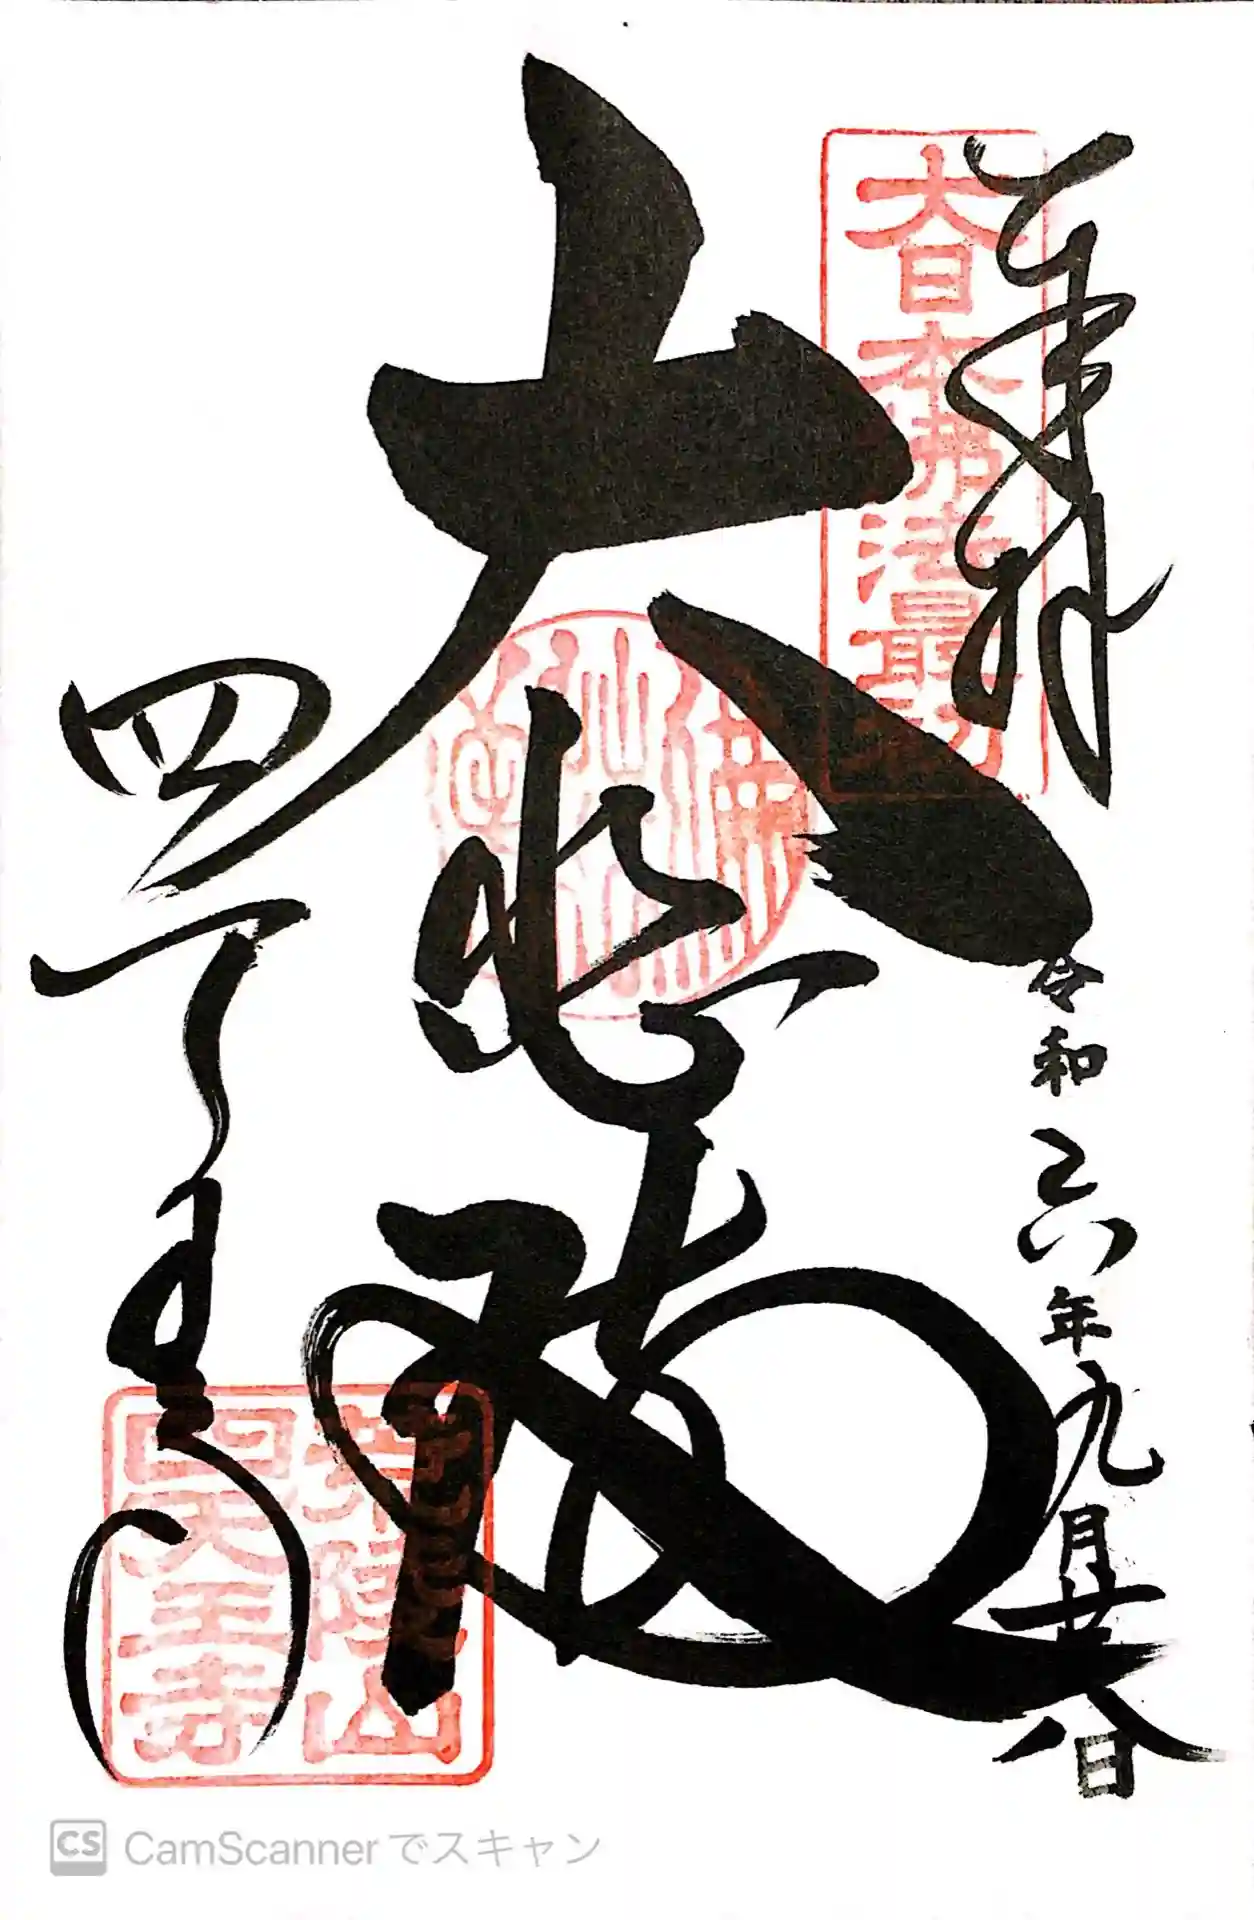 奉拝
大日本佛法最初
令和六年九月廿八日
大悲救
四天王寺
荒陵山
四天王寺
CS CamScannerでスキャン